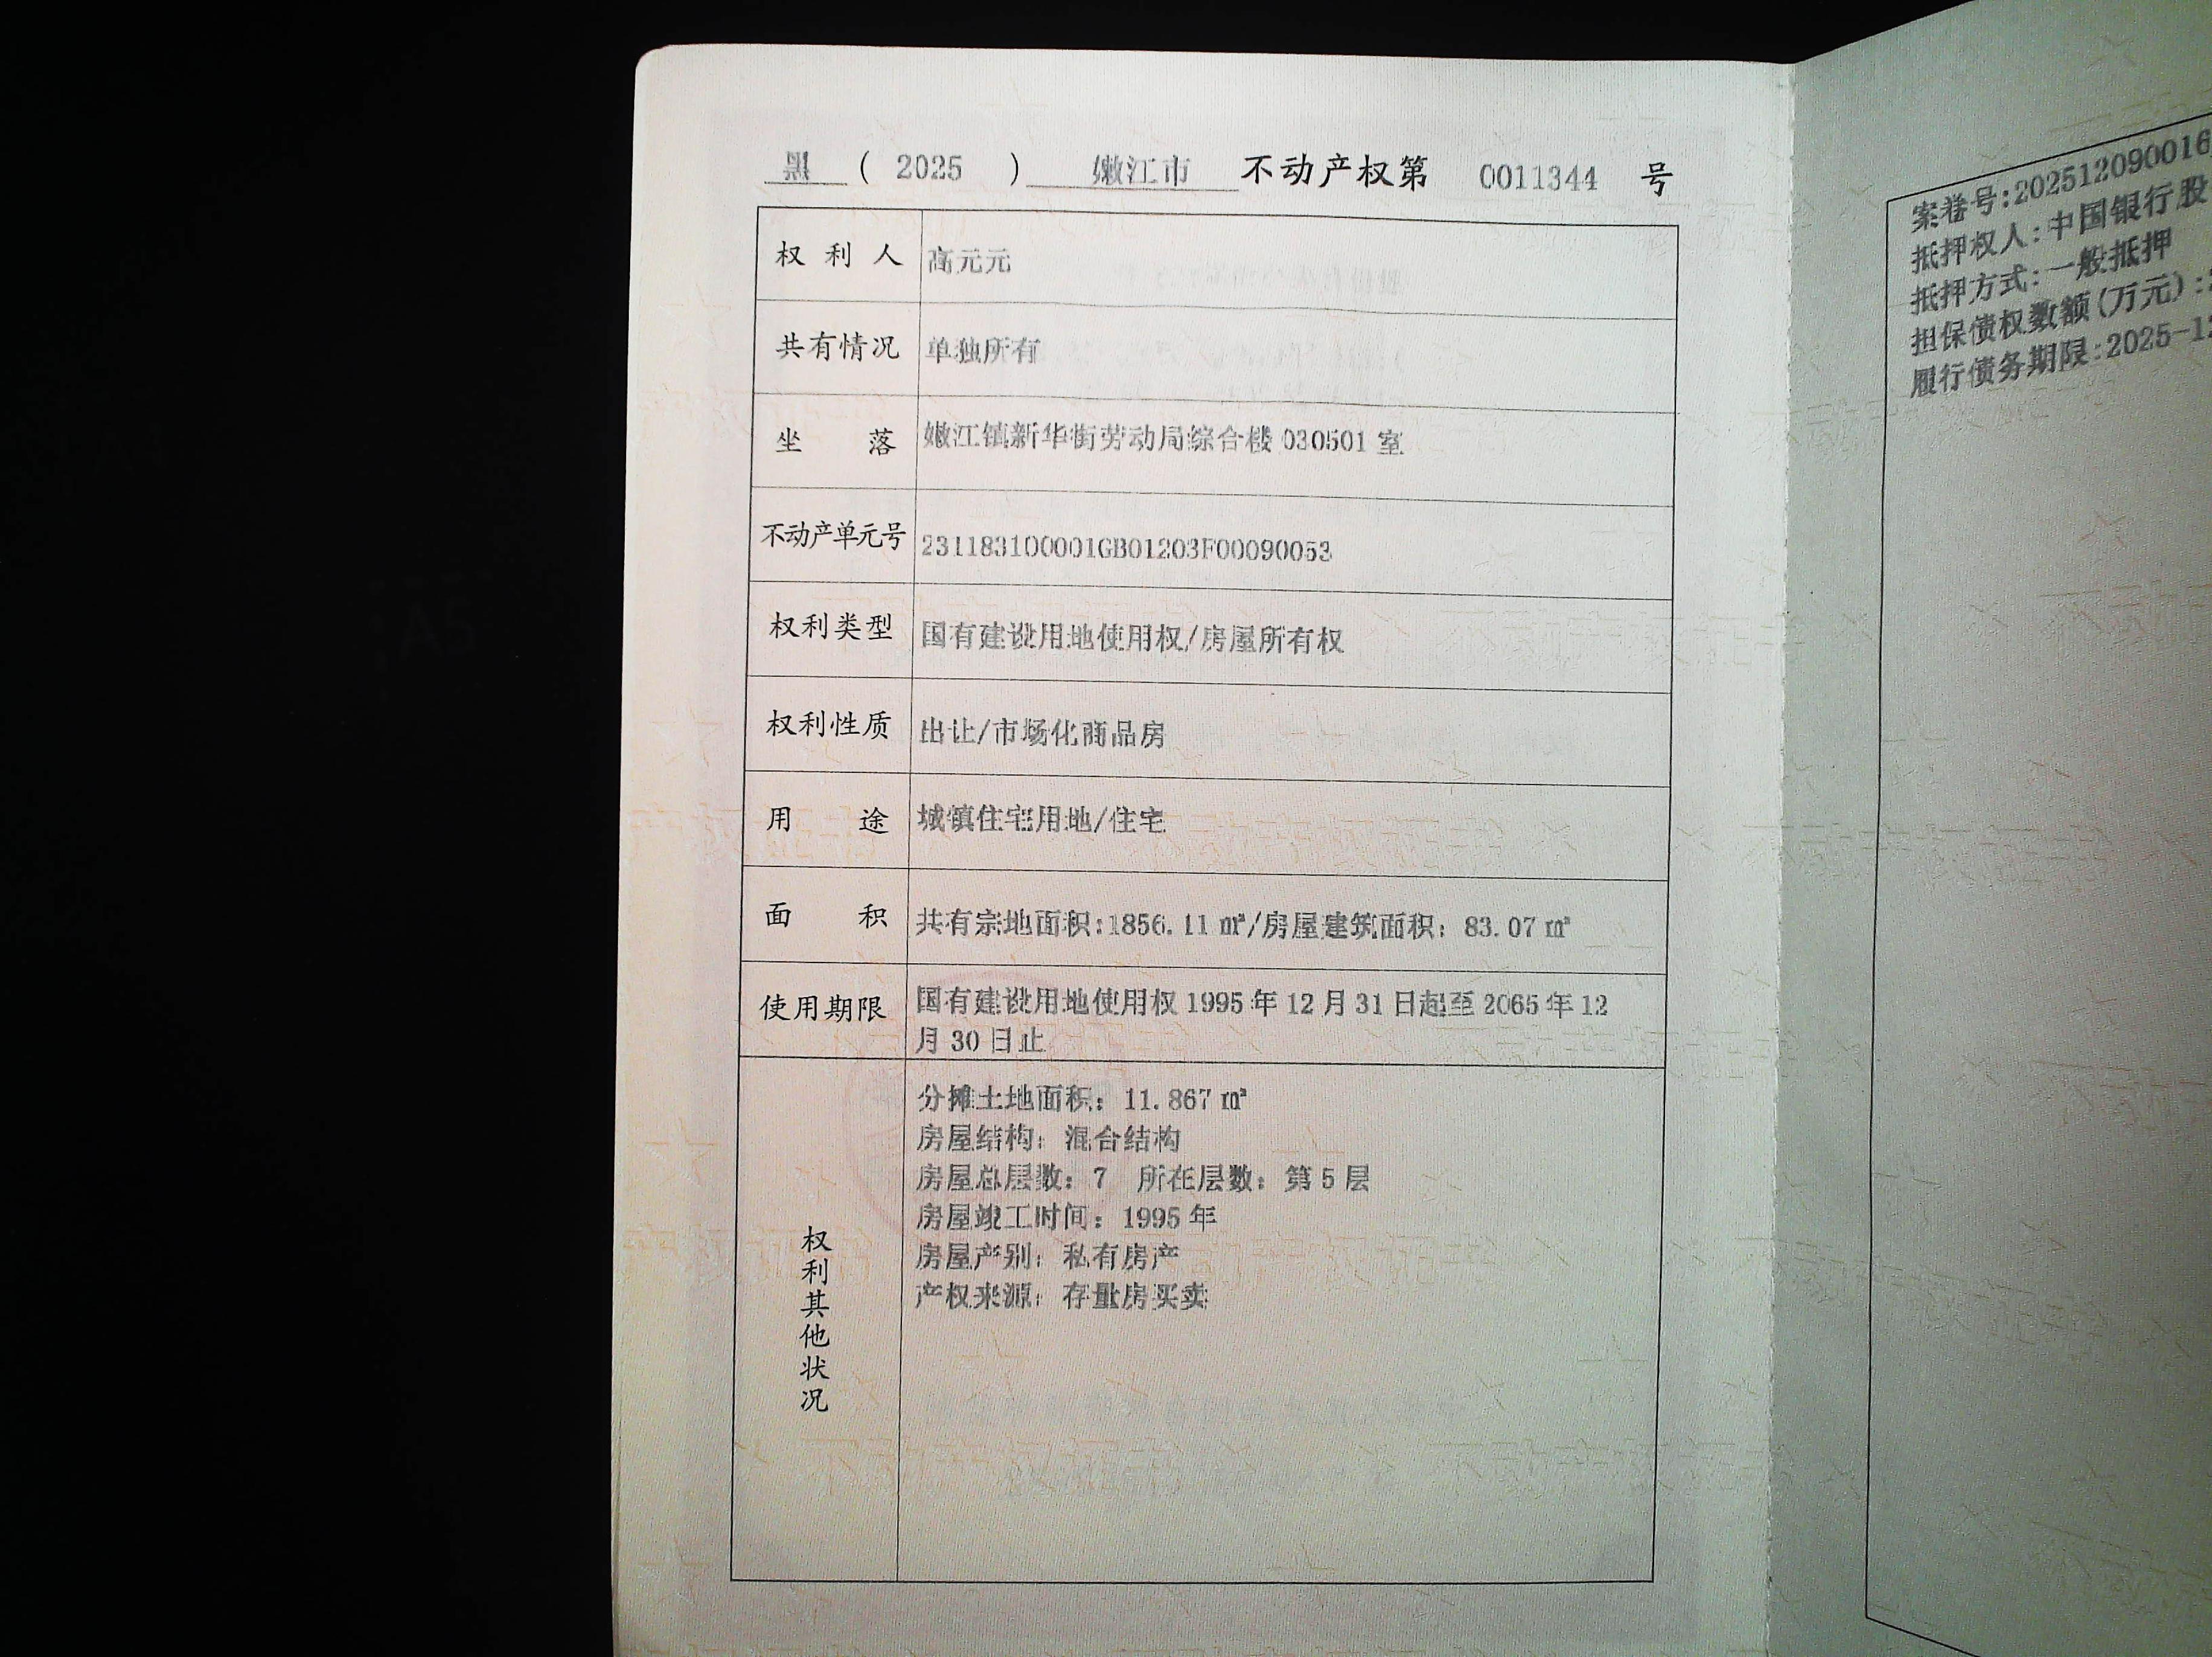 黑 ( 2025 ) 嫩江市 不动产权第 0011344 号
权利人 高元元
共有情况 单独所有
坐落 嫩江镇新华街劳动局综合楼 030501 室
不动产单元号 231183100001GB01203F00090053
权利类型 国有建设用地使用权/房屋所有权
权利性质 出让/市场化商品房
用途 城镇住宅用地/住宅
面积 共有宗地面积:1856.11 ㎡/房屋建筑面积: 83.07 ㎡
使用期限 国有建设用地使用权 1995 年 12 月 31 日起至 2065 年 12
月 30 日止
权利其他状况
分摊土地面积: 11.867 ㎡
房屋结构: 混合结构
房屋总层数: 7 所在层数: 第 5 层
房屋竣工时间: 1995 年
房屋产别: 私有房产
产权来源: 存量房买卖
案卷号:202512090016
抵押权人:中国银行股
抵押方式:一般抵押
担保债权数额(万元):
履行债务期限:2025-1